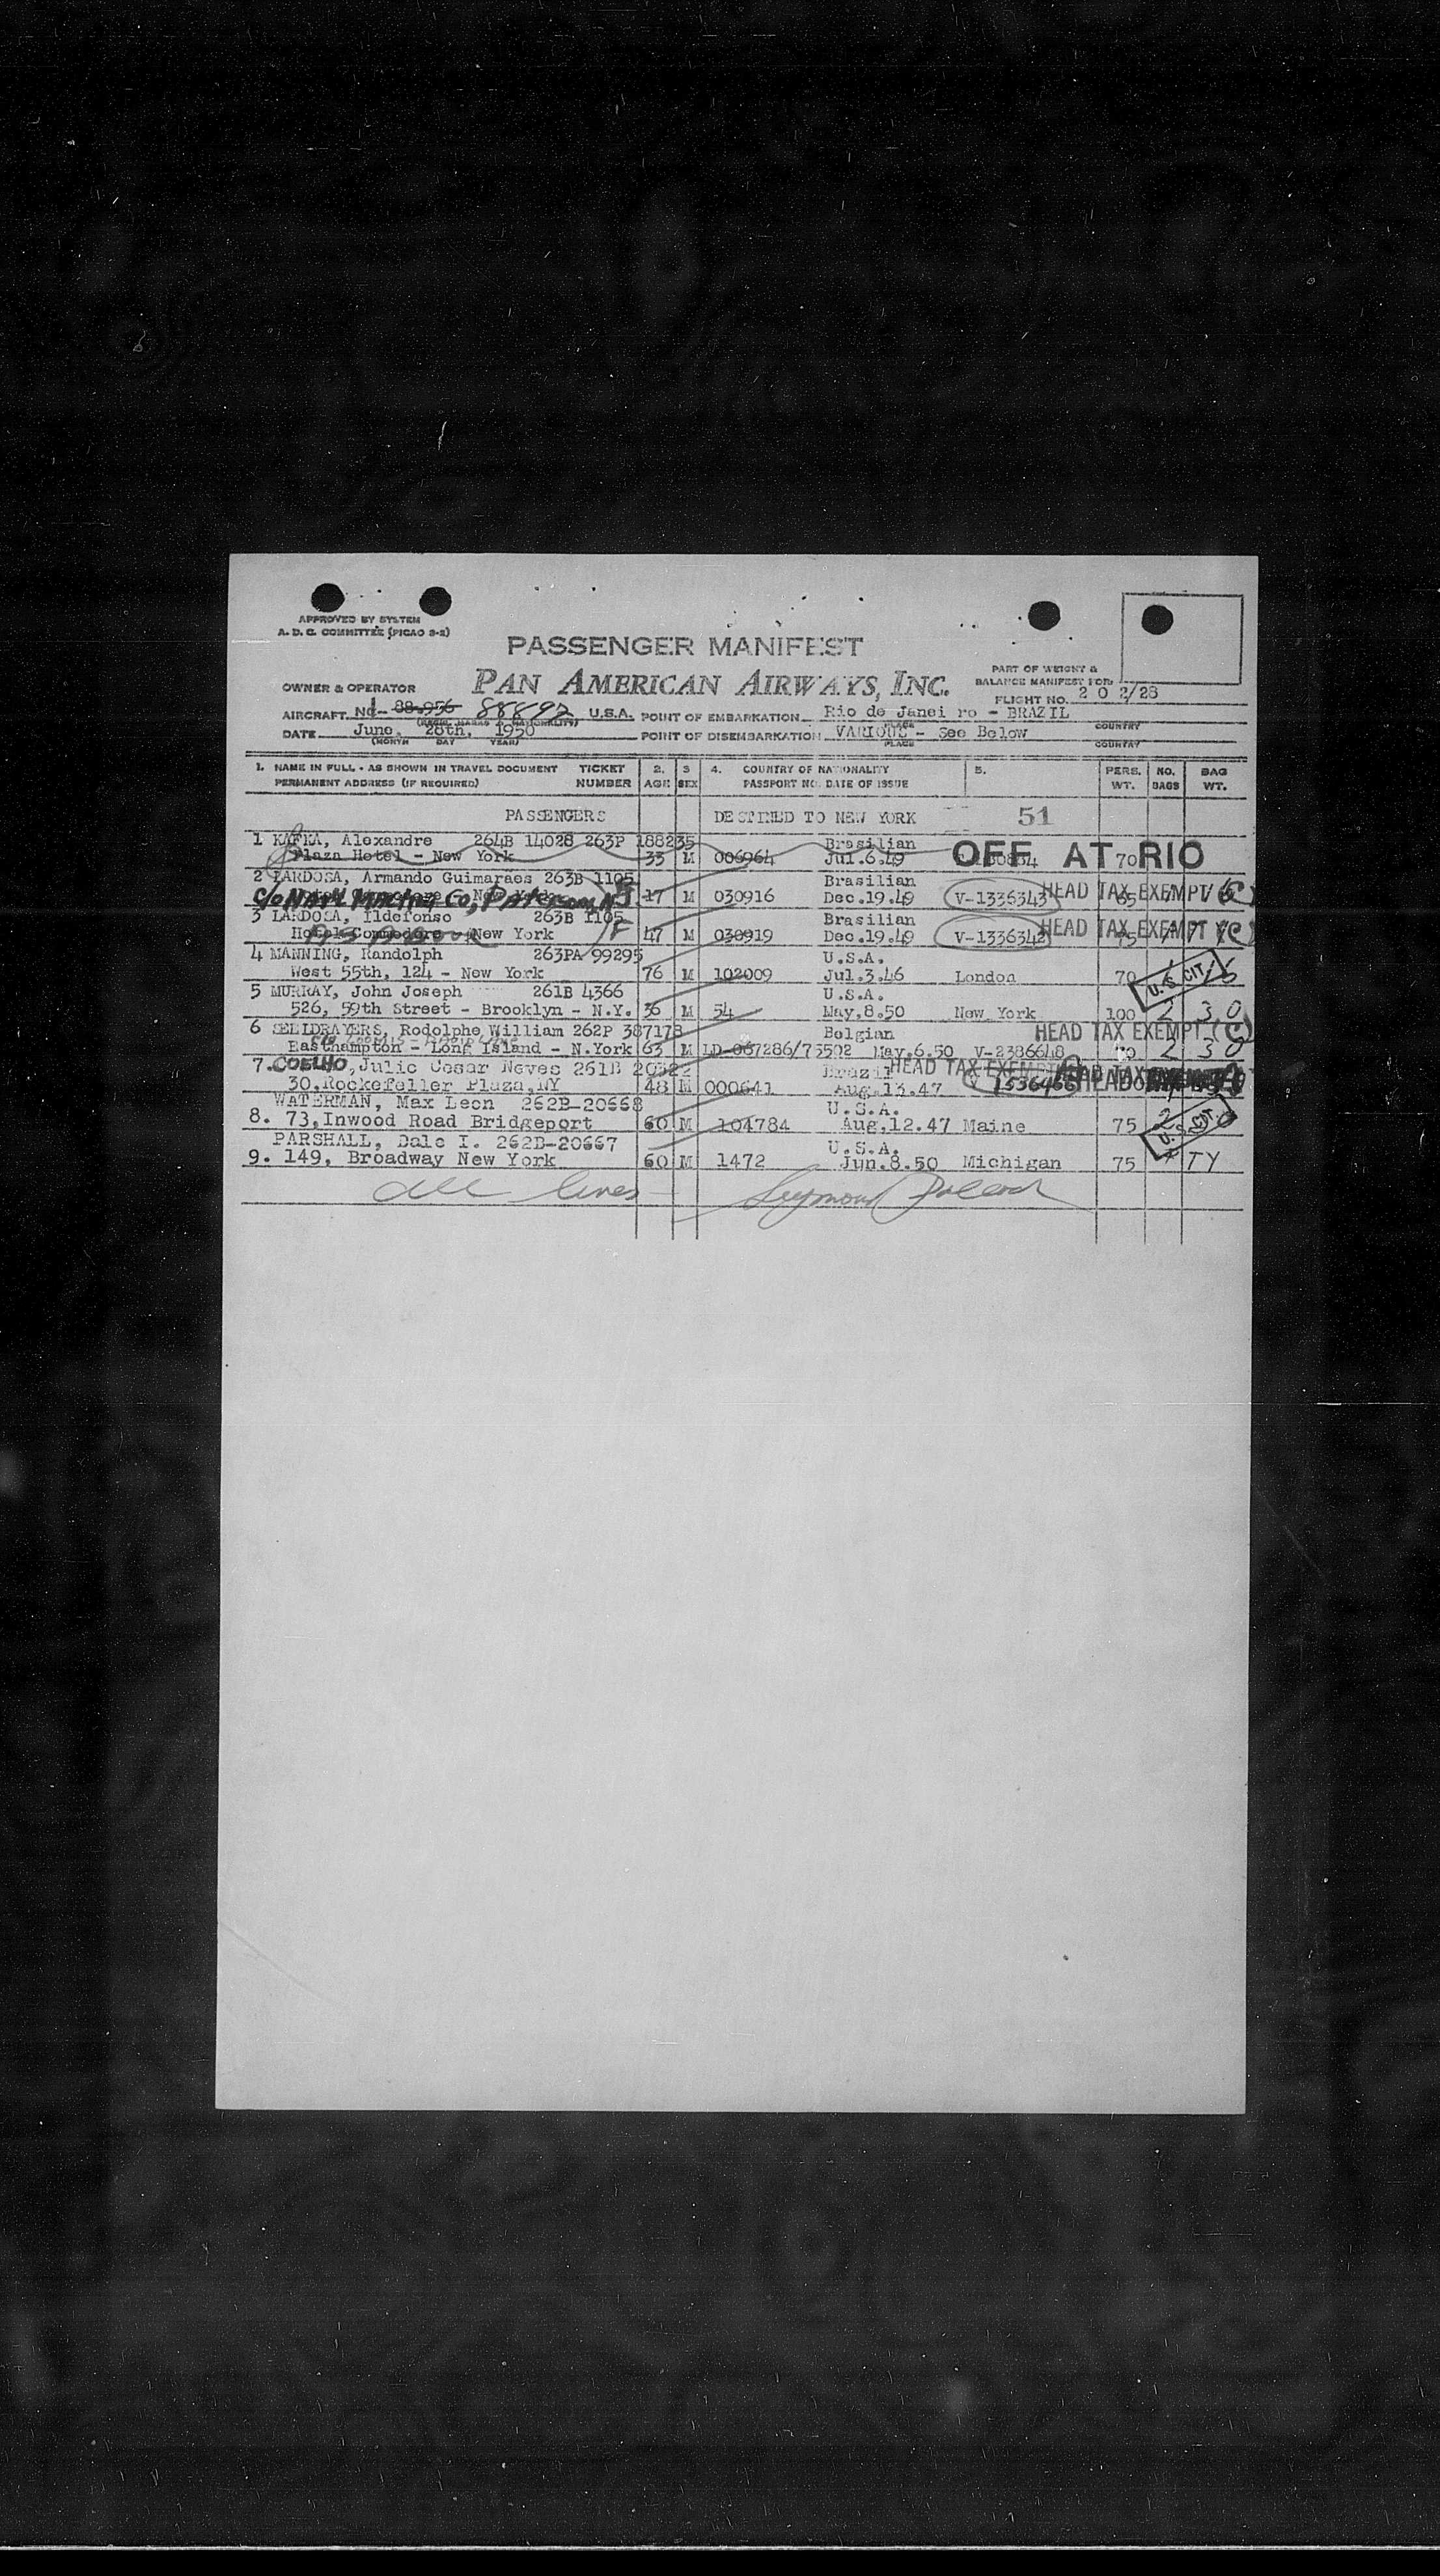 APPROVED BY SYSTEM
A. D. C. COMMITTEE (PICAO 3-2)
PASSENGER MANIFEST
PAN AMERICAN AIRWAYS, INC.
PART OF WEIGHT &
BALANCE MANIFEST FOR:
FLIGHT NO. 2 0 2/28
OWNER & OPERATOR
AIRCRAFT 88-956 88892 U.S.A. POINT OF EMBARKATION Rio de Janei ro - BRAZIL
PLACE COUNTRY
DATE June, 28th, 1950 POINT OF DISEMBARKATION VARIOUS - See Below
(MONTH DAY YEAR) PLACE COUNTRY
1. NAME IN FULL - AS SHOWN IN TRAVEL DOCUMENT TICKET 2. 3 4. COUNTRY OF NATIONALITY 5. PERS. NO. BAG
PERMANENT ADDRESS (IF REQUIRED) NUMBER AGE SEX PASSPORT NO. DATE OF ISSUE WT. BAGS WT.
PASSENGERS DESTINED TO NEW YORK 51
1 KAFKA, Alexandre 264B 14028 263P 188235 Brasilian
Plaza Hotel - New York 33 M 006964 Jul.6.49 OFF AT RIO 70
2 Armando Guimaraes 263B 1105 Brasilian
c/o Co, Paterson NJ 17 M 030916 Dec.19.49 V-1336343 HEAD TAX EXEMPT (C)
3 Ildefonso 263B 1105 Brasilian
Hotel Commodore New York 47 M 030919 Dec.19.49 V-1336342 HEAD TAX EXEMPT (C)
4 MANNING, Randolph 263PA 99295 U.S.A.
West 55th, 124 - New York 76 M 102009 Jul.3.46 London 70 U.S. CIT.
5 MURRAY, John Joseph 261B 4366 U.S.A.
526, 59th Street - Brooklyn - N.Y. 36 M 54 May.8.50 New York 100 2 30
6 Rodolphe William 262P 387178 Belgian HEAD TAX EXEMPT (C)
Easthampton - Long Island - N.York 63 M May.6.50 V-2386648 2 30
7. COELHO, Julio Cesar Neves 261B Brazil HEAD TAX EXEMPT
30,Rockefeller Plaza,NY 48 M 000641 Aug.13.47 1536466
WATERMAN, Max Leon 262B-20668 U.S.A.
8. 73,Inwood Road Bridgeport 60 M 104784 Aug.12.47 Maine 75 U.S. CIT.
PARSHALL, Dale I. 262B-20667 U.S.A.
9. 149, Broadway New York 60 M 1472 Jun.8.50 Michigan 75
all lines